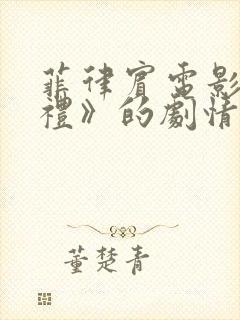 菲律賓電影
禮》的劇情
董楚青